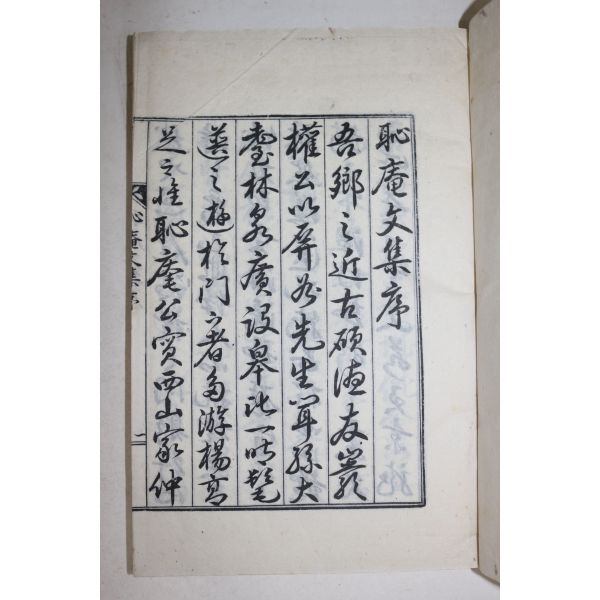 恥庵文集序
吾鄉之近古碩德友巖
權公以屛谷先生耳孫大
耋林泉廣設皐比一時髦
之遊於門下者多游楊高
足之惟恥庵公實西山家仲
恥庵文集序
一